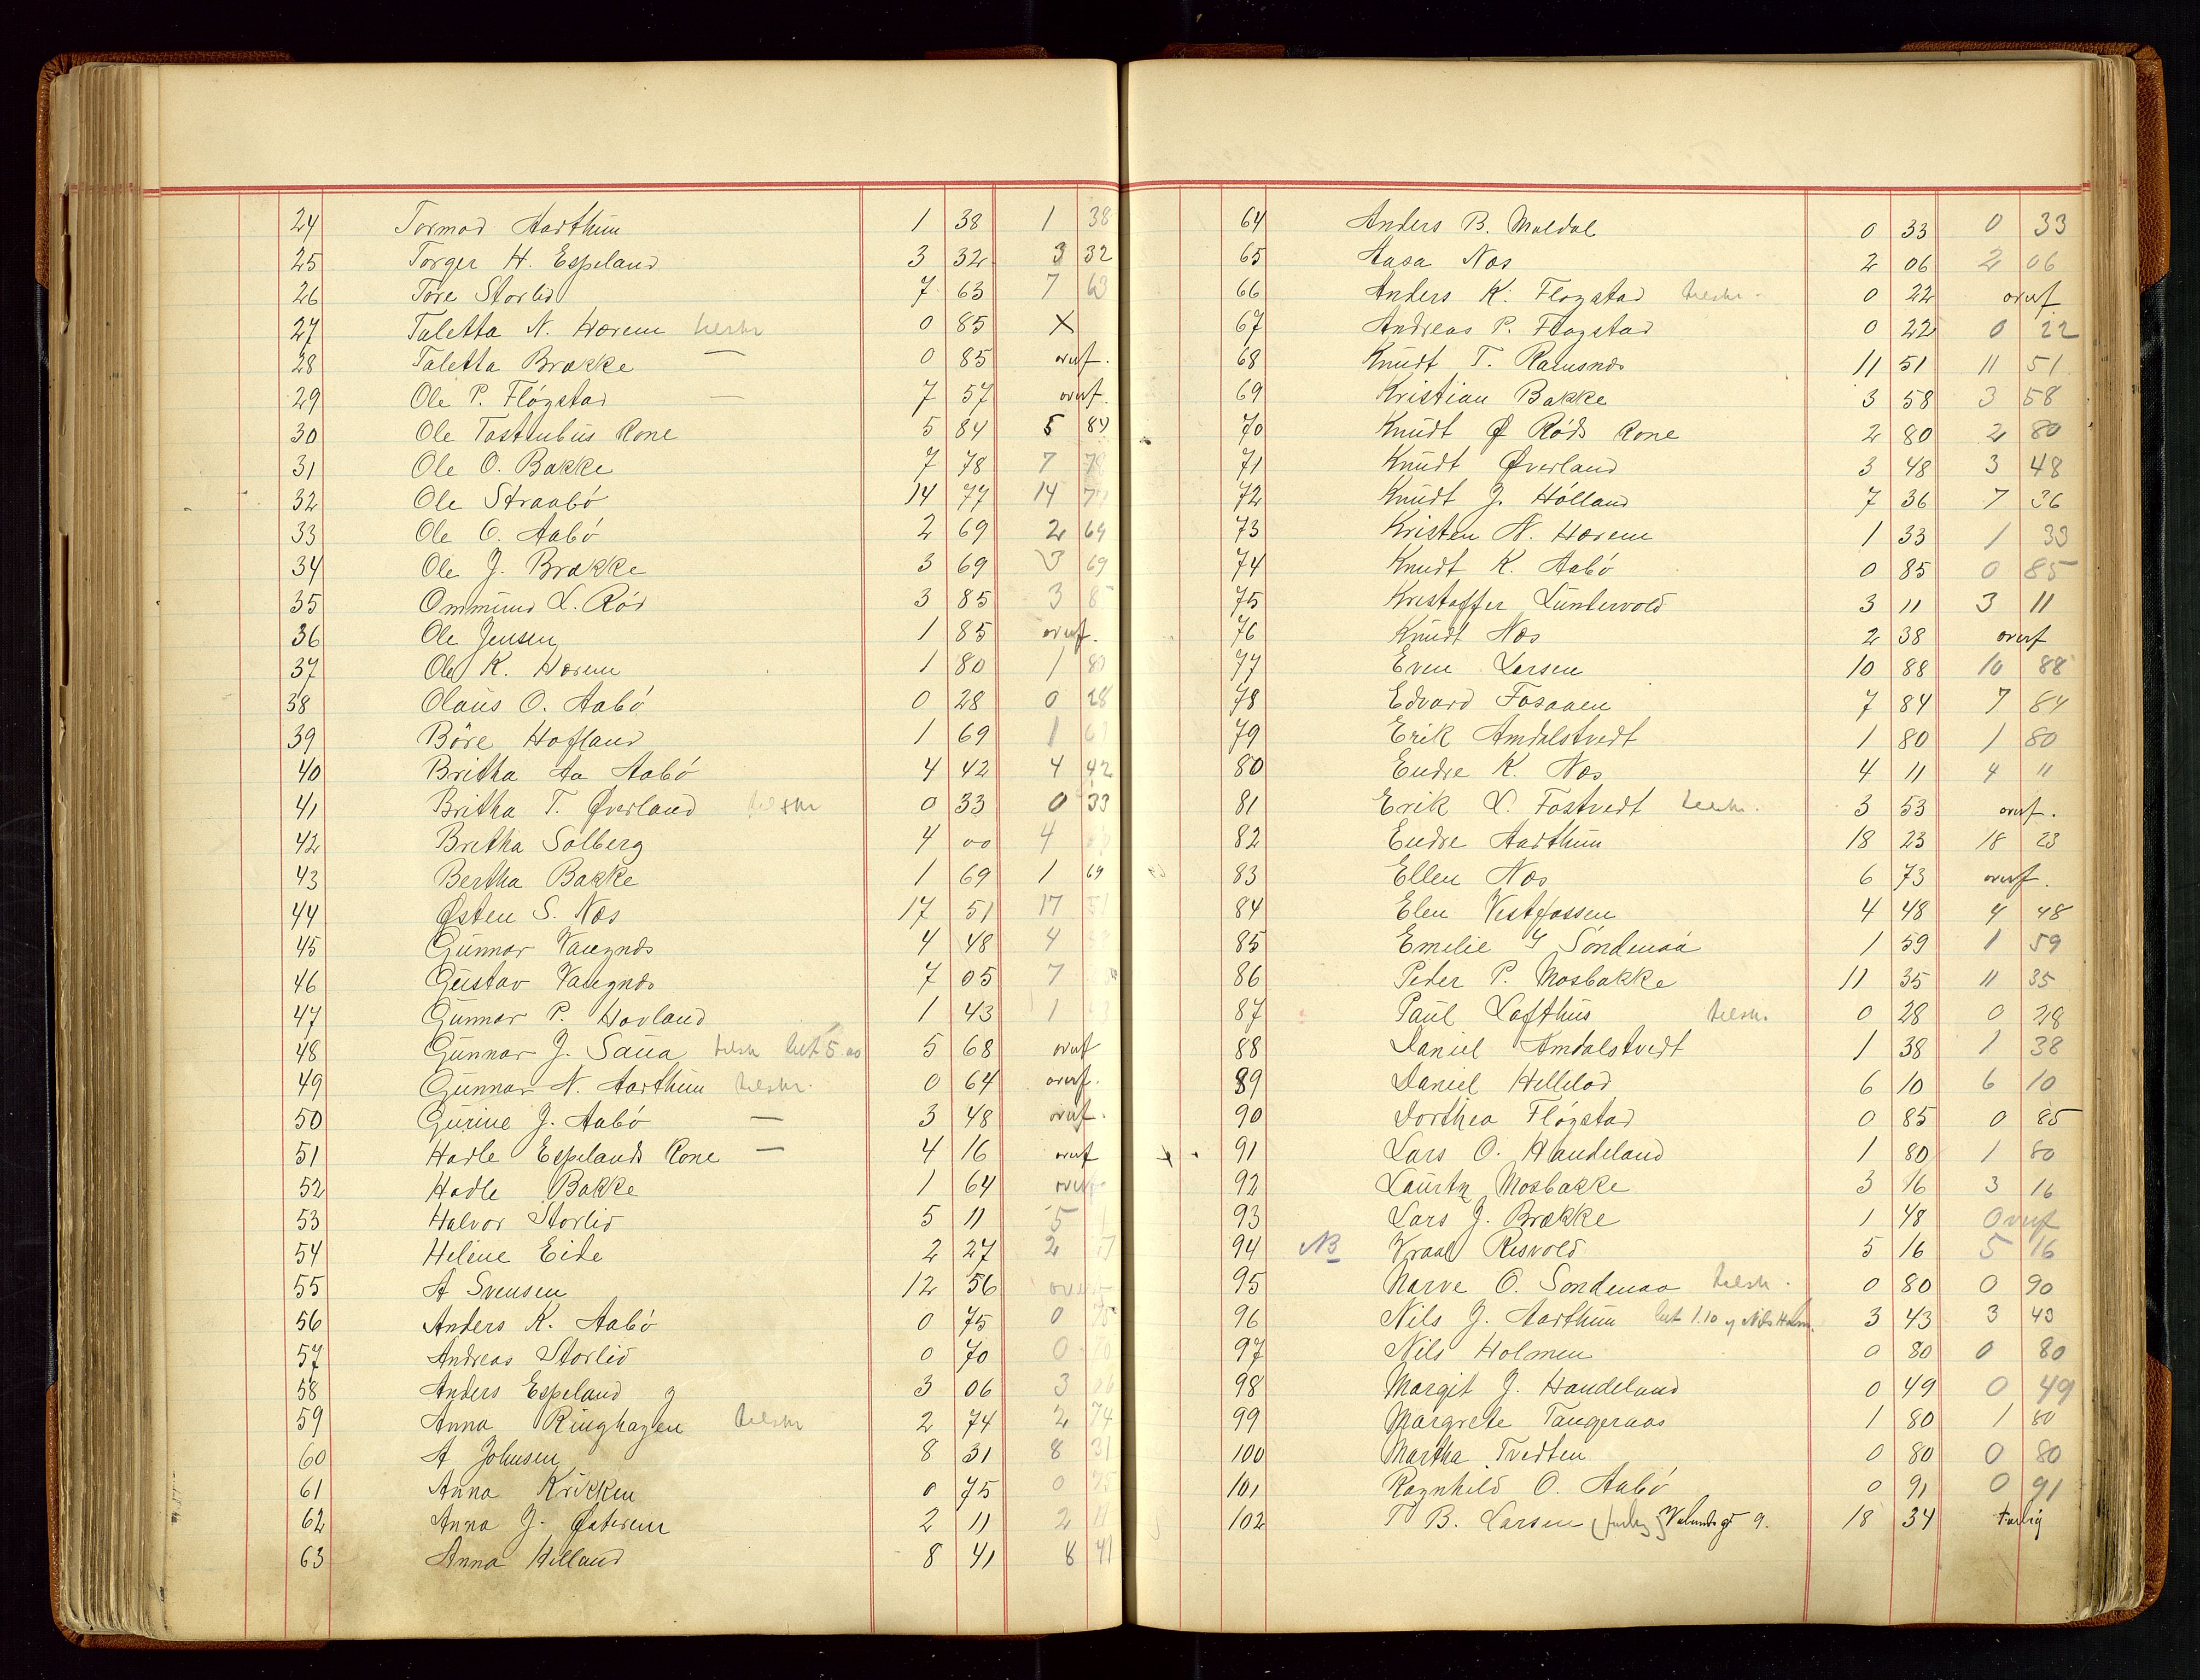 24 Tormod Aarthun 1 38 1 38
25 Torger H. Espeland 3 32 3 32
26 Tore Storlid 7 63 7 63
27 Taletta N. Hærem tilskr 0 85 X
28 Taletta Brække — 0 85 overf.
29 Ole P. Fløgstad — 7 57 overf.
30 Ole Tostenbus Kone 5 84 5 84
31 Ole O. Bakke 7 78 7 78
32 Ole Straabø 14 77 14 77
33 Ole O. Aabø 2 69 2 69
34 Ole J. Brække 3 69 3 69
35 Ommund L. Rød 3 85 3 85
36 Ole Jensen 1 85 overf.
37 Ole K. Hærem 1 80 1 80
38 Olaus O. Aabø 0 28 0 28
39 Båre Hofland 1 69 1 69
40 Britha Aa Aabø 4 42 4 42
41 Britha T. Øverland tilskr 0 33 0 33
42 Bretha Solberg 4 00 4
43 Bertha Bakke 1 69 1 69
44 Østen S. Næs 17 51 17 51
45 Gunnar Vaagnds 4 48 4
46 Gustav Vaagnds 7 05 7
47 Gunnar P. Hovland 1 43 1 43
48 Gunnar J. Saua tilsk 5 00 5 68 overf
49 Gunnar N. Aarthun tilskr. 0 64 overf.
50 Gurine J. Aabø — 3 48 overf.
51 Hadle Espelands Kone — 4 16 overf
52 Hadle Bakke 1 64 overf
53 Halvor Storlid 5 11 5
54 Helene Eide 2 27 2 27
55 A Svensen 12 56 overf
56 Anders K. Aabø 0 75 0 75
57 Andreas Storlid 0 70 0 70
58 Anders Espeland 3 06 3 06
59 Anna Ringhagen tilskr 2 74 2 74
60 A Johnsen 8 31 8 31
61 Anna Krikken 0 75 0 75
62 Anna J. Østerem 2 11 2 11
63 Anna Helland 8 41 8 41
64 Anders B. Maldal 0 33 0 33
65 Aasa Næs 2 06 2 06
66 Anders K. Fløgstad tilskr. 0 22 overf
67 Andreas P. Fløgstad 0 22 0 22
68 Knudt T. 11 51 11 51
69 Kristian Bakke 3 58 3 58
70 Knudt Ø Røds Kone 2 80 2 80
71 Knudt Øverland 3 48 3 48
72 Knudt J. Hølland 7 36 7 36
73 Kristen N. Hærem 1 33 1 33
74 Knudt K. Aabø 0 85 0 85
75 Kristoffer Lundervold 3 11 3 11
76 Knudt Næs 2 38 overf
77 Even Larsen 10 88 10 88
78 Edvard Fosaaen 7 84 7 84
79 Erik Amdalstvedt 1 80 1 80
80 Endre K. Næs 4 11 4 11
81 Erik L. Fostvedt tilskr. 3 53 overf.
82 Endre Aarthun 18 23 18 23
83 Ellen Næs 6 73 overf.
84 Elen Vestfossen 4 48 4 48
85 Emelie G Søndenaa 1 59 1 59
86 Peder P. Mosbakke 11 35 11 35
87 Paul Lofthus tilskr. 0 28 0 28
88 Daniel Amdalstvedt 1 38 1 38
89 Daniel Hellelad 6 10 6 10
90 Dorthea Fløgstad 0 85 0 85
91 Lars O. Handeland 1 80 1 80
92 Lauritz Mosbakke 3 16 3 16
93 Lars J. Brække 1 48 Overf
94 NB Vraal Risvold 5 16 5 16
95 Narve O. Søndenaa tilskr. 0 80 0 90
96 Nils J. Aarthun 1.10 Nils Holm. 3 43 3 43
97 Nils Holmen 0 80 0 80
98 Margit J. Handeland 0 49 0 49
99 Margrete Tangeraas 1 80 1 80
100 Martha Tvedten 0 80 0 80
101 Ragnhild O. Aabø 0 91 0 91
102 T B. Larsen 18 34